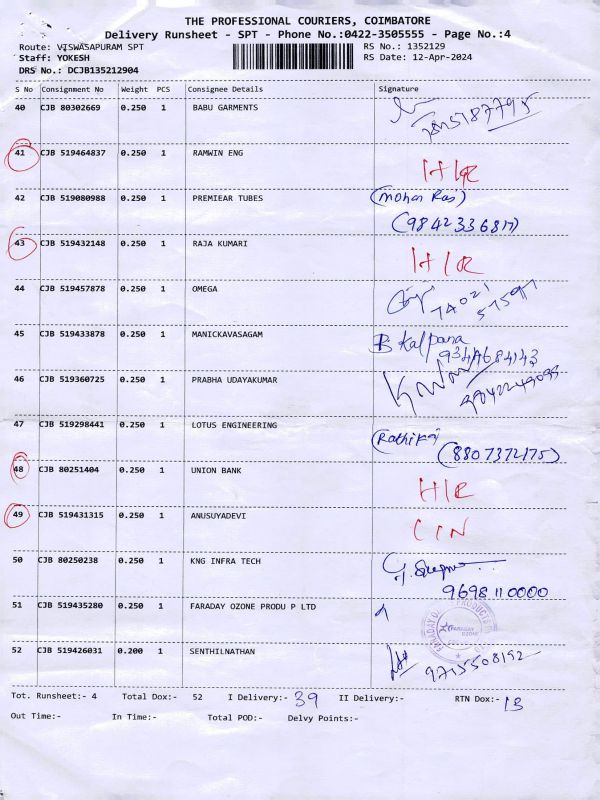 THE PROFESSIONAL COURIERS, COIMBATORE
Delivery Runsheet - SPT - Phone No.:0422-3505555 - Page No.:4
Route: VISWASAPURAM SPT RS No.: 1352129
Staff: YOKESH RS Date: 12-Apr-2024
DRS No.: DCJB135212904
S No Consignment No Weight PCS Consignee Details Signature
40 CJB 80302669 0.250 1 BABU GARMENTS
41 CJB 519464837 0.250 1 RAMWIN ENG
42 CJB 519080988 0.250 1 PREMIEAR TUBES (Mohan Raj)
(9842336817)
43 CJB 519432148 0.250 1 RAJA KUMARI
44 CJB 519457878 0.250 1 OMEGA
45 CJB 519433878 0.250 1 MANICKAVASAGAM B Kalpana
9347684143
46 CJB 519360725 0.250 1 PRABHA UDAYAKUMAR
47 CJB 519298441 0.250 1 LOTUS ENGINEERING
(8807372175)
48 CJB 80251404 0.250 1 UNION BANK
49 CJB 519431315 0.250 1 ANUSUYADEVI
50 CJB 80250238 0.250 1 KNG INFRA TECH
9698110000
51 CJB 519435280 0.250 1 FARADAY OZONE PRODU P LTD
52 CJB 519426031 0.200 1 SENTHILNATHAN 9715508192
Tot. Runsheet:- 4 Total Dox:- 52 I Delivery:- 39 II Delivery:- RTN Dox:- 13
Out Time:- In Time:- Total POD:- Delvy Points:-